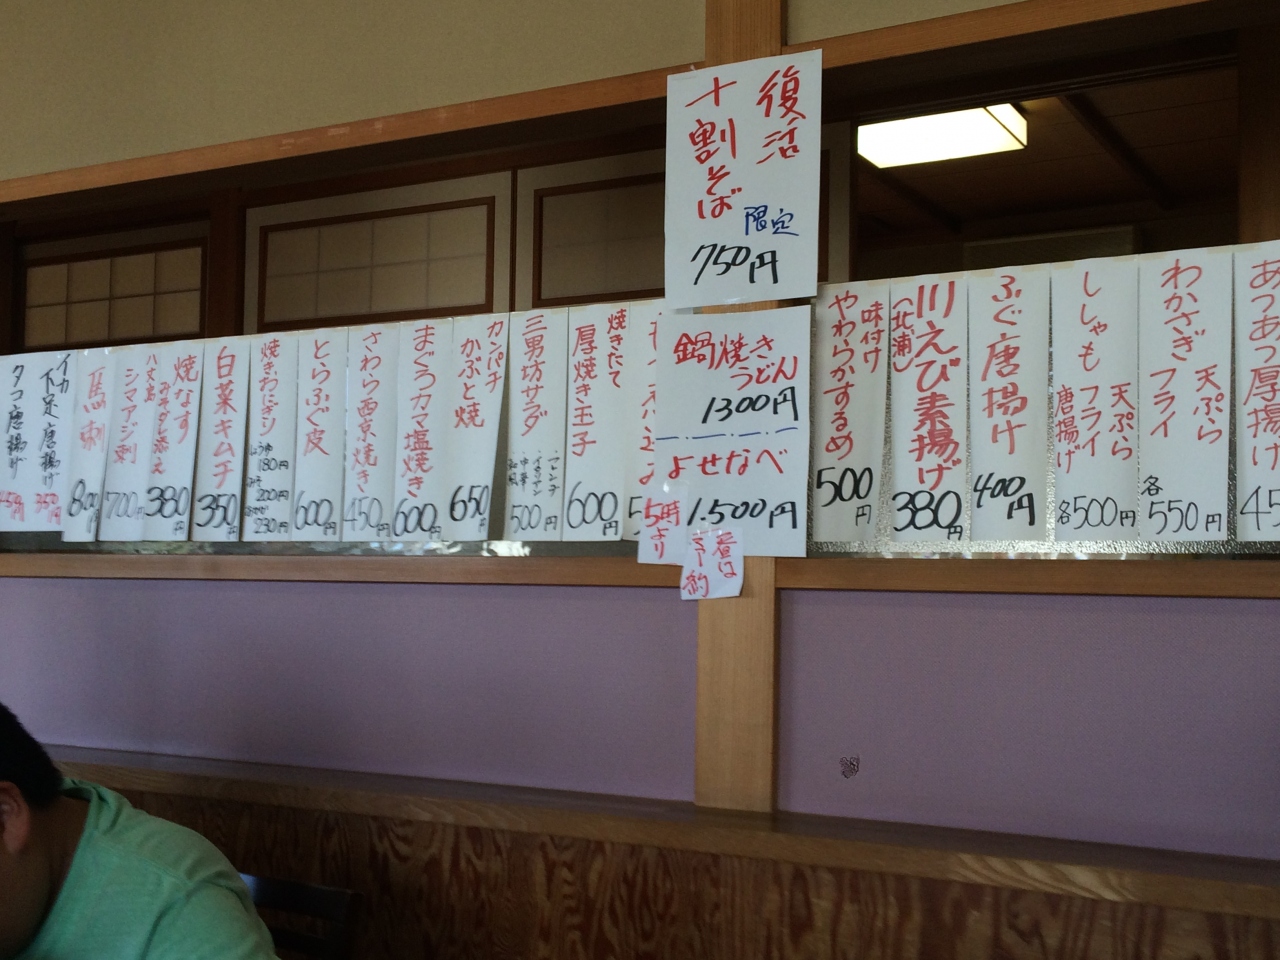 復活
十割そば
限定
750円
鍋焼き
うどん
1300円
よせなべ
1.500円
5時より
昼は
予約
あつあつ厚揚げ
わかさぎ 天ぷら
フライ
各
550円
ししゃも 天ぷら
フライ
唐揚げ
各500円
ふぐ唐揚げ
400円
川えび素揚げ
(北浦)
380円
味付け
やわらかするめ
500円
焼きたて
厚焼き玉子
600円
三男坊サラダ
・フレンチ
・イタリアン
・中華
・和風
500円
カンパチ
かぶと焼
650円
まぐろカマ塩焼き
600円
さわら西京焼き
450円
とらふぐ皮
600円
焼きおにぎり
しょうゆ
180円
みそ
200円
230円
白菜キムチ
350円
焼なす
380円
八丈島
シマアジ刺
700円
馬刺
800円
イカ
下足唐揚げ
350円
タコ唐揚げ
450円